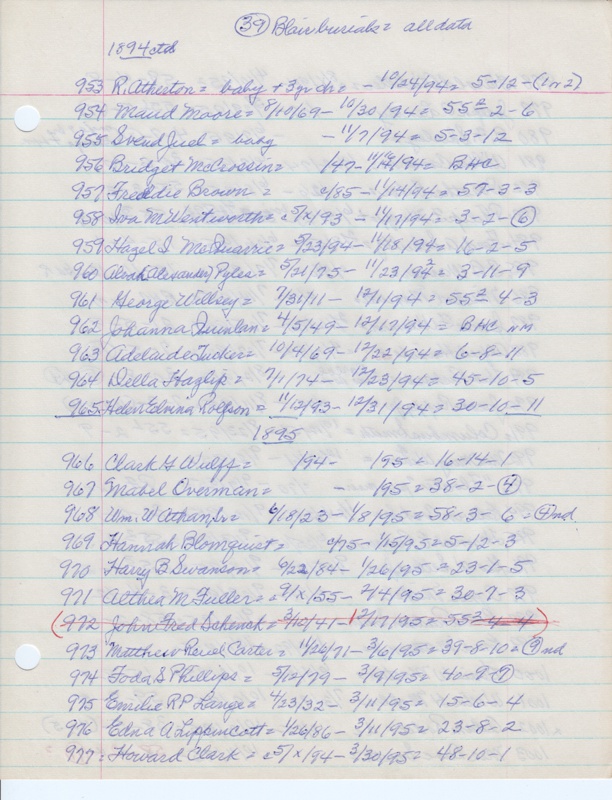 (39) Blair burials = all data
1894 ctd
953 R. Atherton = baby + 3 yr ch = - 10/24/94 = 5-12-(1 or 2)
954 Maud Moore = 8/10/69 - 10/30/94 = 55²-2-6
955 Svend Juel = baby - 11/7/94 = 5-3-12
956 Bridget McCrossin = /47 - 11/12/94 = BHC
957 Freddie Brown = c/85 - 11/14/94 = 57-3-3
958 Iva M Wentworth = c5/x/93 - 11/17/94 = 3-2-(6)
959 Hazel I. McQuarrie = 5/23/94 - 11/18/94 = 16-2-5
960 Alvah Alexander Pyles = 5/21/75 - 11/23/94² = 3-11-9
961 George Willsey = 7/31/11 - 12/1/94 = 55²-4-3
962 Johanna Quinlan = 4/5/49 - 12/17/94 = BHC nm
963 Adelaide Tucker = 10/4/69 - 12/22/94 = 6-8-11
964 Della Hazlip = 7/1/74 - 12/23/94 = 45-10-5
965 Helen Edmna Rolfson = 11/12/93 - 12/31/94 = 30-10-11
1895
966 Clark G Wulff = /94 - /95 = 16-14-1
967 Mabel Overman = - /95 = 38-2-(4)
968 Wm. W Athan Sr = 6/18/23 - 1/8/95 = 58-3-6 = (9) nd
969 Hannah Blomquist = c/75 - 1/15/95 = 5-12-3
970 Harry B Swanson = 9/22/84 - 1/26/95 = 23-1-5
971 Althea M Fuller = c9/x/55 - 2/4/95 = 30-7-3
(972 John Fred Schenck = 3/10/41 - 12/17/95 = 55²-4-4)
973 Matthew Reuel Carter = 11/26/71 - 3/6/95 = 39-8-10 = (9) nd
974 Foda S Phillips = 5/12/79 - 3/9/95 = 40-9-(7)
975 Emilie R P Lange = 4/23/32 - 3/11/95 = 15-6-4
976 Edna A Lippincott = 1/26/86 - 3/11/95 = 23-8-2
977 = Howard Clark = c5/x/94 - 3/30/95 = 48-10-1